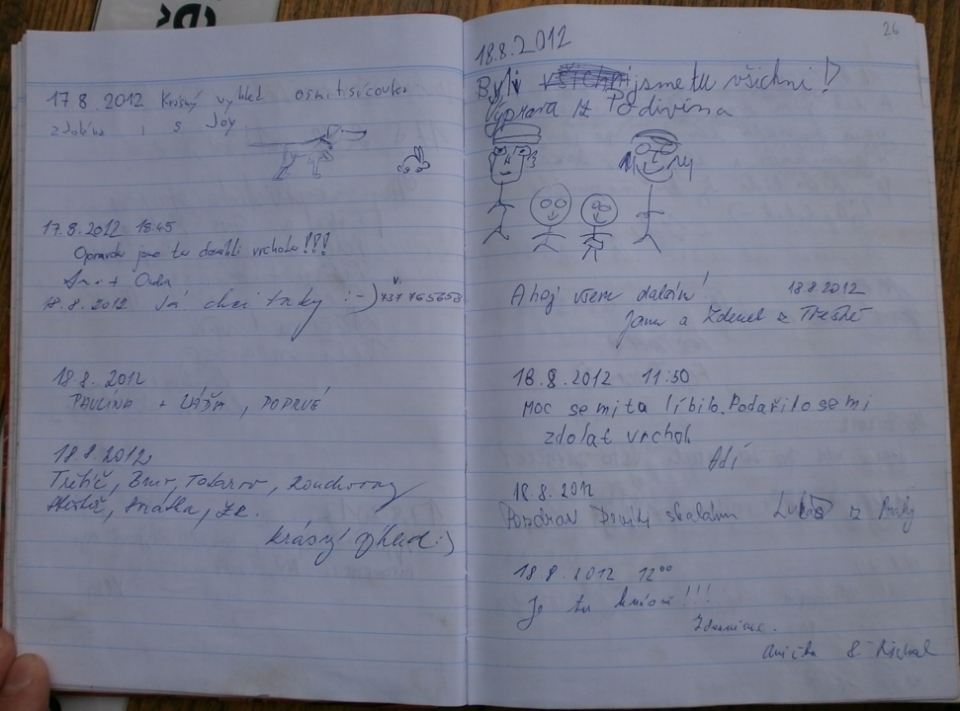 17.8.2012 Krásný výhled osmitisícovka
zdolána i s Joy.
17.8.2012 18:45
Opravdu jsme tu dosáhli vrcholu!!!
18.8.2012 Já chci taky :-)
18.8.2012
PAVLÍNA + LÁĎA, POPRVÉ
18.8.2012
Třebíč, Brno,
krásný výhled :)
26
18.8.2012
Byli jsme tu všichni!
Výprava z Podivína
Ahoj všem dalším! 18.8.2012
Jana a Zdenek z Třeště
18.8.2012 11:50
Moc se mi ta líbilo. Podařilo se mi
zdolat vrchol
Adí
18.8.2012
Pozdrav skalám Lukáš z
18.8.2012 12⁰⁰
Je tu krásně!!!
Zdravíme.
Anička & Michal